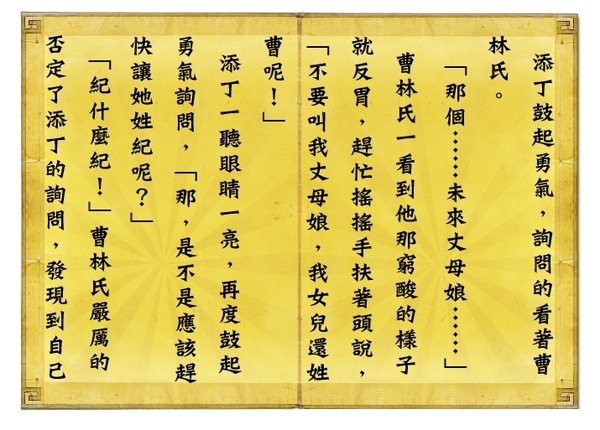 添丁鼓起勇氣，詢問的看著曹
林氏。
「那個⋯⋯未來丈母娘⋯⋯」
曹林氏一看到他那窮酸的樣子
就反胃，趕忙搖搖手扶著頭說，
「不要叫我丈母娘，我女兒還姓
曹呢！」
添丁一聽眼睛一亮，再度鼓起
勇氣詢問，「那，是不是應該趕
快讓她姓紀呢？」
「紀什麼紀！」曹林氏嚴厲的
否定了添丁的詢問，發現到自己